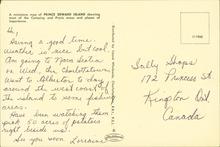 A miniature map of PRINCE EDWARD ISLAND showing
most of the Camping and Picnic areas and places of
importance.
Hi,
Having a good time.
Weather is nice but cool.
Am going to Nova Scotia
on Wed. the Charlottetown.
Went to Alberton to-day
around the west coast of
the island to some fishing
areas.
Have been watching them
pick 50 acres of potatoes
right beside us.
See you soon
Lorraine
Sally Shops
172 Princess St.
Kingston Ont.
Canada